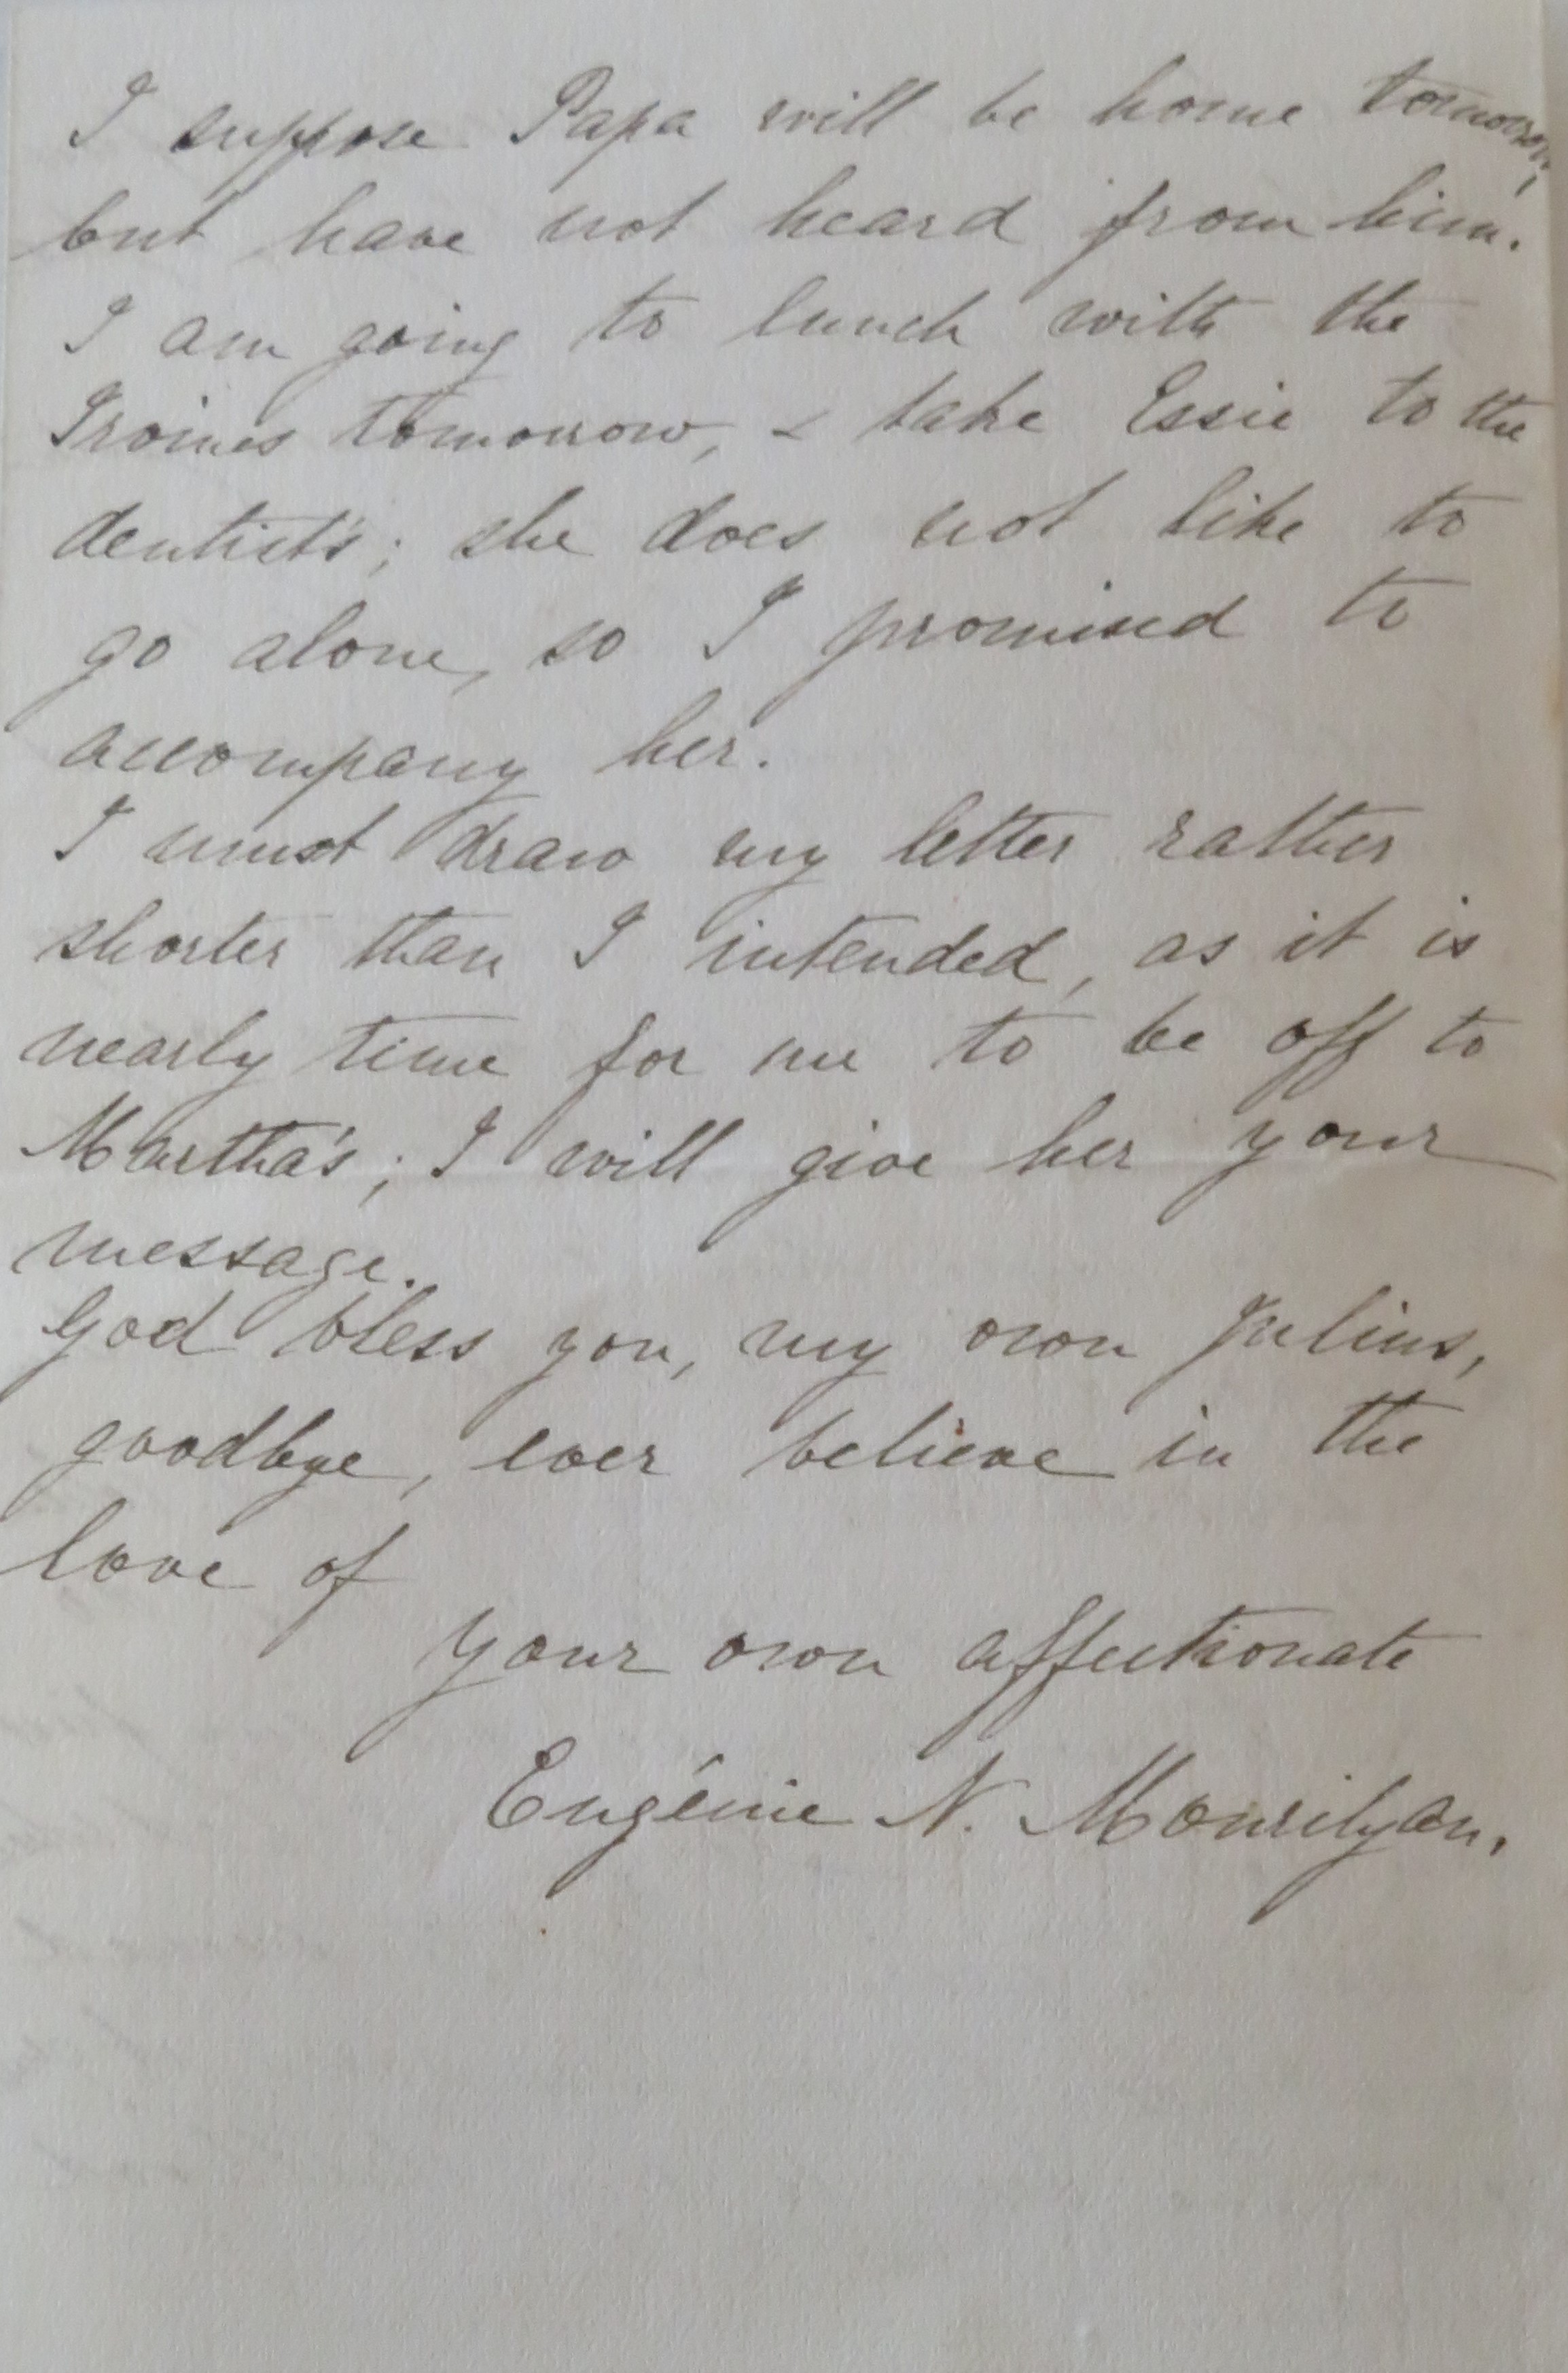 I suppose Papa will be home tomorrow,
but have not heard from him.
I am going to lunch with the
Irvines tomorrow, & take Essie to the
dentist's; she does not like to
go alone, so I promised to
accompany her.
I must draw my letter rather
shorter than I intended, as it is
nearly time for me to be off to
Martha's; I will give her your
message.
God bless you, my own Julius,
goodbye, ever believe in the
love of
your own affectionate
Eugénie N. Mourilyan.